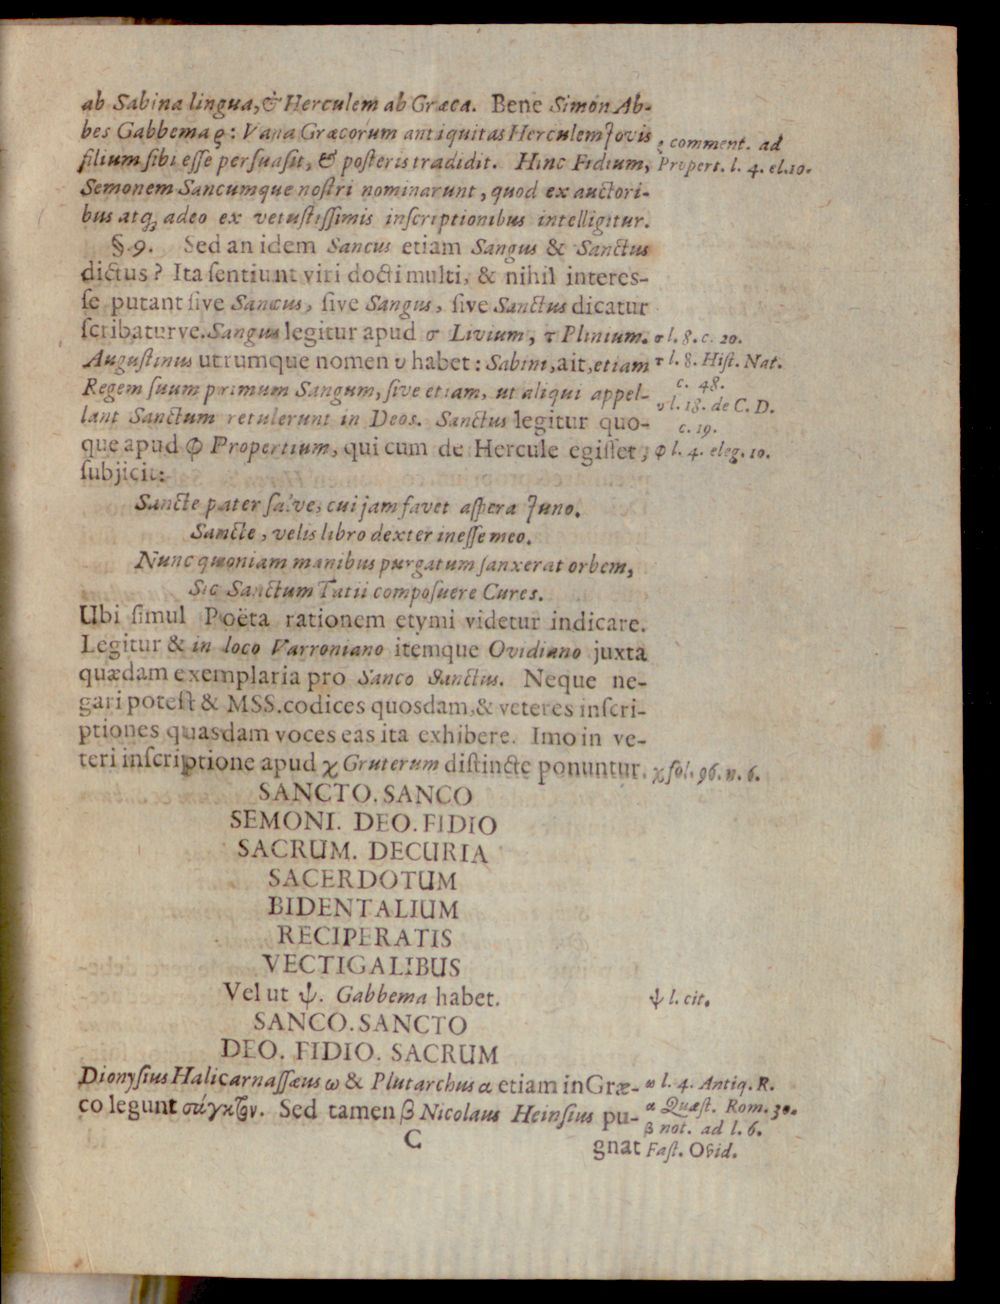 ab Sabina lingua, & Herculem ab Græca. Bene Simon Ab-
bes Gabbema ϛ: Vana Græcorum antiquitas Herculem Jovis
filium sibi esse persuasit, & posteris tradidit. Hinc Fidium,
Semonem Sancumque nostri nominarunt, quod ex auctori-
bus atq; adeo ex vetustissimis inscriptionibus intelligitur.
ϛ comment. ad
Propert. l. 4. el.10.
§. 9. Sed an idem Sancus etiam Sangus & Sanctus
dictus? Ita sentiunt viri docti multi, & nihil interes-
se putant sive Sancus, sive Sangus, sive Sanctus dicatur
scribaturve. Sangus legitur apud σ Livium, τ Plinium.
Augustinus utrumque nomen υ habet: Sabini, ait, etiam
Regem suum primum Sangum, sive etiam, ut aliqui appel-
lant Sanctum retulerunt in Deos. Sanctus legitur quo-
que apud φ Propertium, qui cum de Hercule egisset,
subjicit:
σ l. 8. c. 20.
τ l. 8. Hist. Nat.
c. 48.
υ l. 18. de C. D.
c. 19.
φ l. 4. eleg. 10.
Sancte pater salve, cui jam favet aspera Juno.
Sancte, velis libro dexter inesse meo.
Nunc quoniam manibus purgatum sanxerat orbem,
Sic Sanctum Tatii composuere Cures.
Ubi simul Poëta rationem etymi videtur indicare.
Legitur & in loco Varroniano itemque Ovidiano juxta
quædam exemplaria pro Sanco Sanctus. Neque ne-
gari potest & MSS. codices quosdam, & veteres inscri-
ptiones quasdam voces eas ita exhibere. Imo in ve-
teri inscriptione apud χ Gruterum distincte ponuntur.
χ fol. 96. n. 6.
SANCTO. SANCO
SEMONI. DEO. FIDIO
SACRUM. DECURIA
SACERDOTUM
BIDENTALIUM
RECIPERATIS
VECTIGALIBUS
Vel ut ψ. Gabbema habet.
ψ l. cit.
SANCO. SANCTO
DEO. FIDIO. SACRUM
Dionysius Halicarnassæus ω & Plutarchus α etiam in Græ-
co legunt σάγκτον. Sed tamen β Nicolaus Heinsius pu-
ω l. 4. Antiq. R.
α Quæst. Rom. 30.
β not. ad l. 6.
Fast. Ovid.
C
gnat